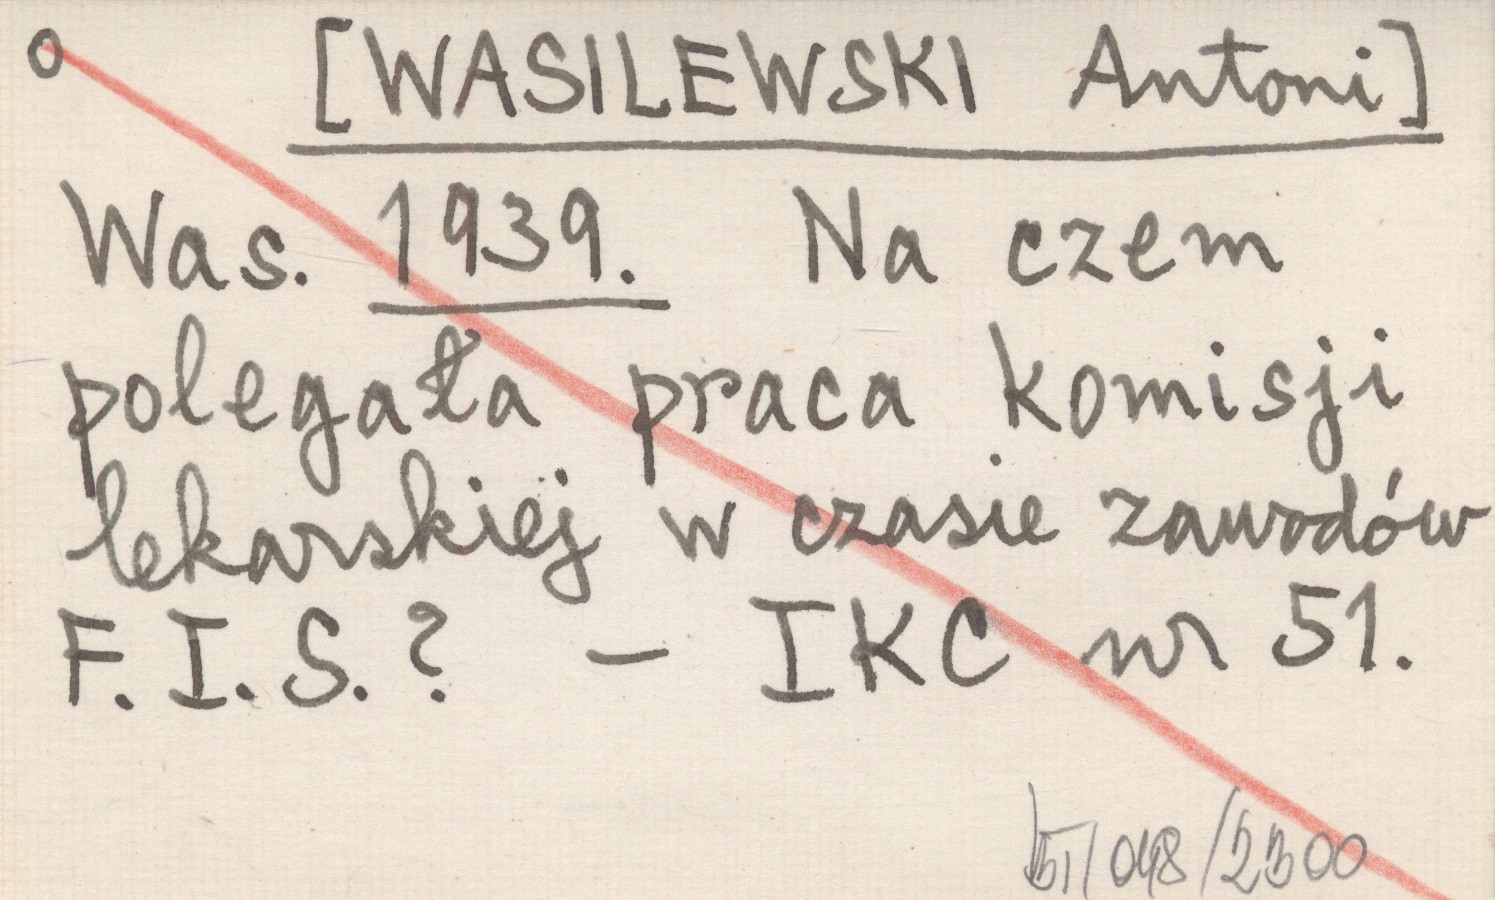 o [WASILEWSKI Antoni]
Was. 1939. Na czem
polegała praca komisji
lekarskiej w czasie zawodów
F.I.S.? — IKC nr 51.
/048/2300